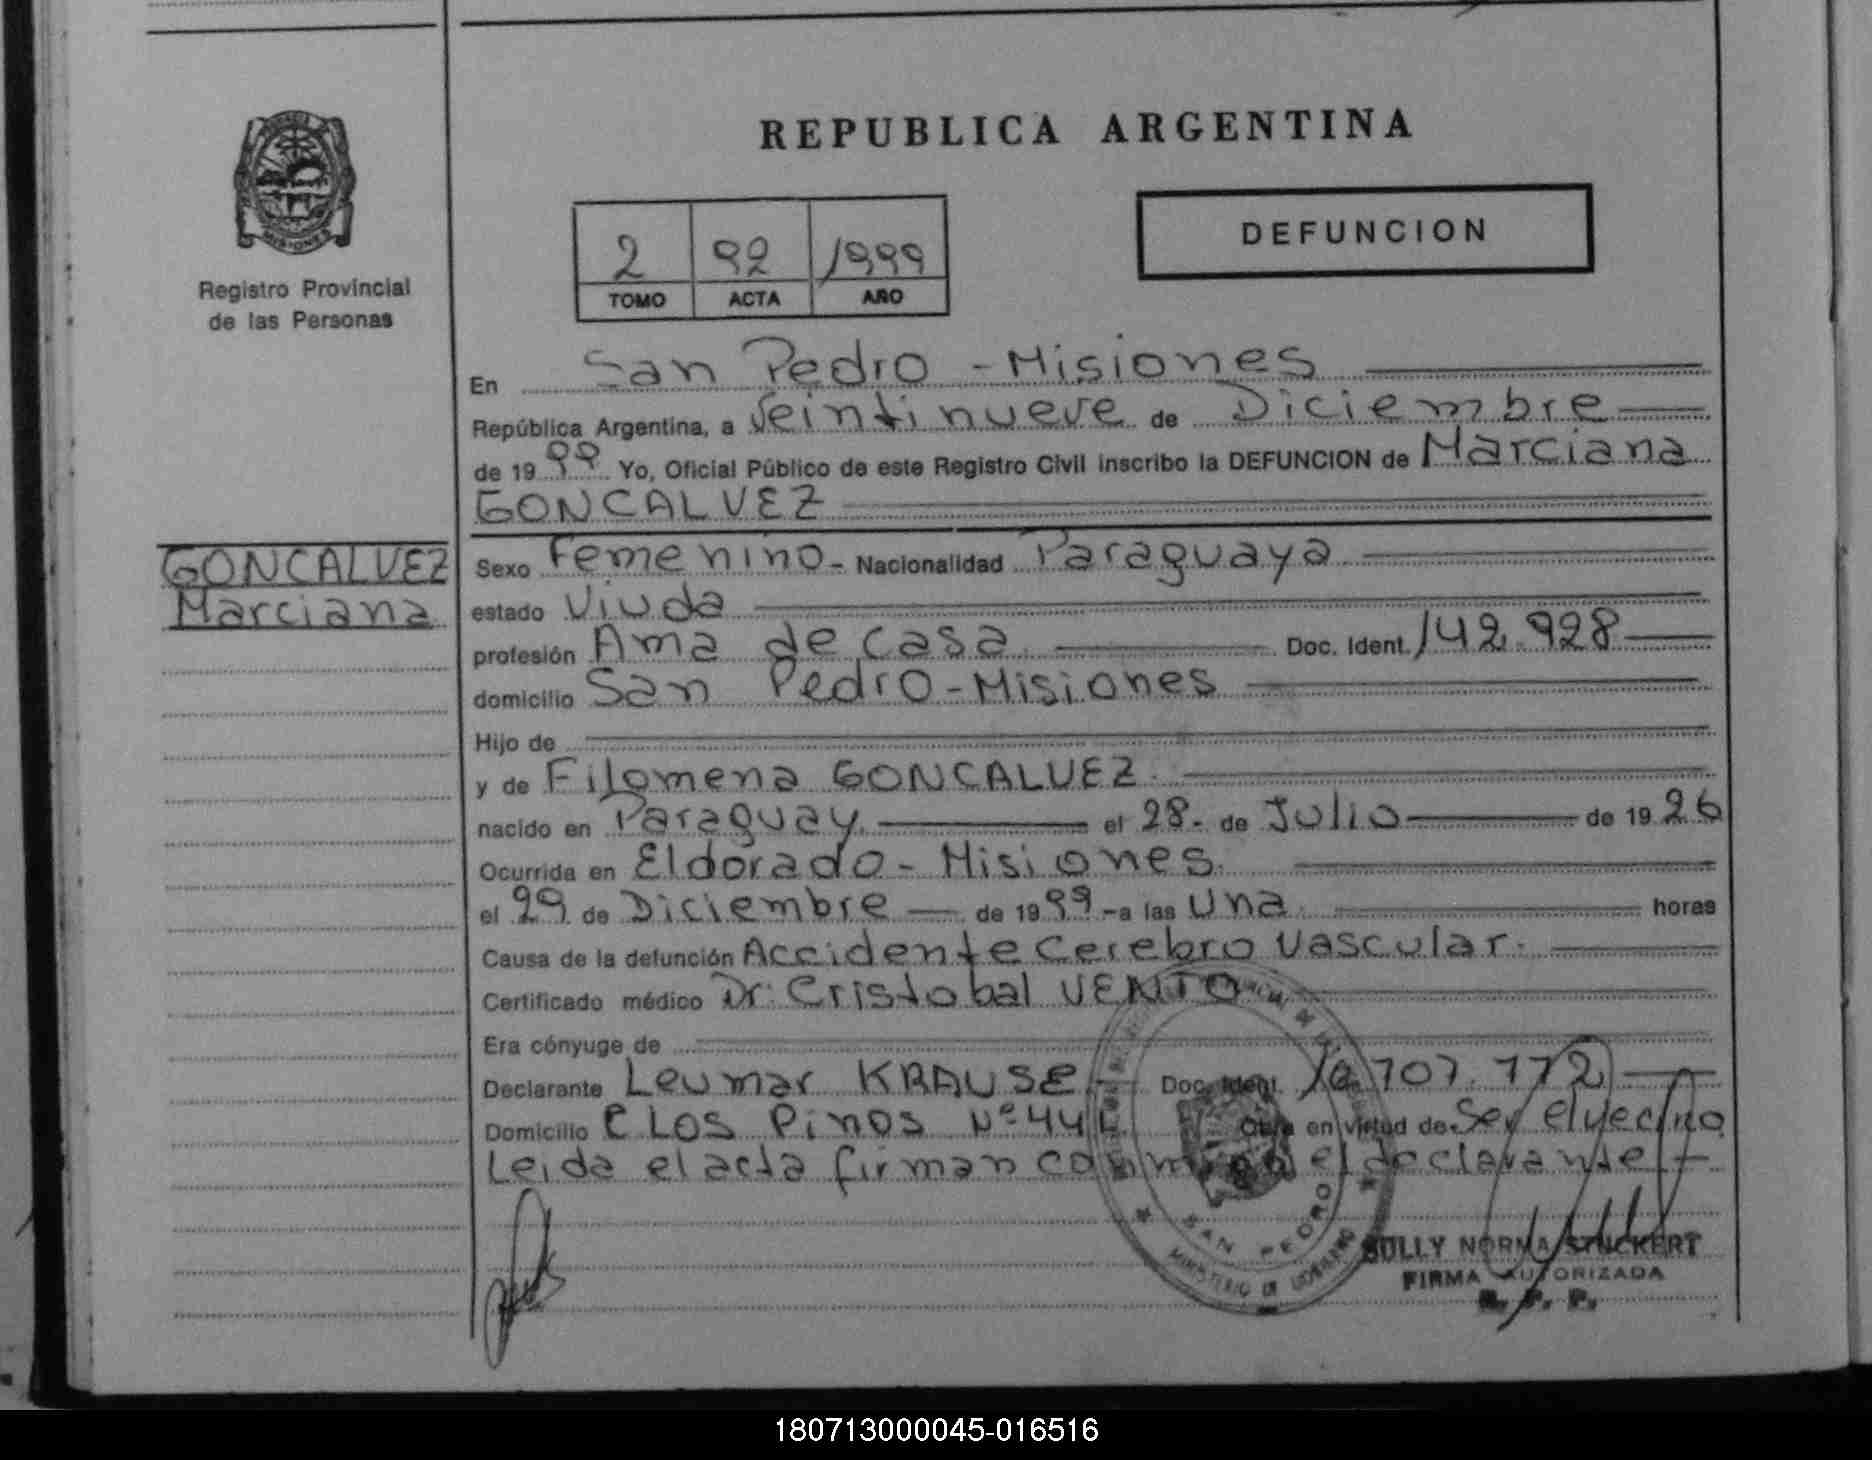 REPUBLICA ARGENTINA
MISIONES
Registro Provincial
de las Personas
2 92 1999
TOMO ACTA AÑO
DEFUNCION
En San Pedro - Misiones
República Argentina, a Veintinueve de Diciembre
de 1999 Yo, Oficial Público de este Registro Civil inscribo la DEFUNCION de Marciana
GONCALVEZ
GONCALVEZ
Marciana
Sexo Femenino - Nacionalidad Paraguaya
estado Viuda
profesión Ama de casa Doc. Ident. 142.928
domicilio San Pedro - Misiones
Hijo de
y de Filomena GONCALVEZ.
nacido en Paraguay. el 28. de Julio de 1926
Ocurrida en Eldorado - Misiones.
el 29 de Diciembre de 1999 - a las Una. horas
Causa de la defunción Accidente Cerebro Vascular.
Certificado médico Dr. Cristobal VENTO
Era cónyuge de
Declarante Leumar KRAUSE Doc. Ident. 707.772
Domicilio C Los Pinos Nº 444 Obra en virtud de Ser el vecino
Leida el acta firman conmigo el declarante
SAN PEDRO
MINISTERIO DE GOBIERNO
NORMA STUCKERT
FIRMA AUTORIZADA
R. P. P.
180713000045-016516